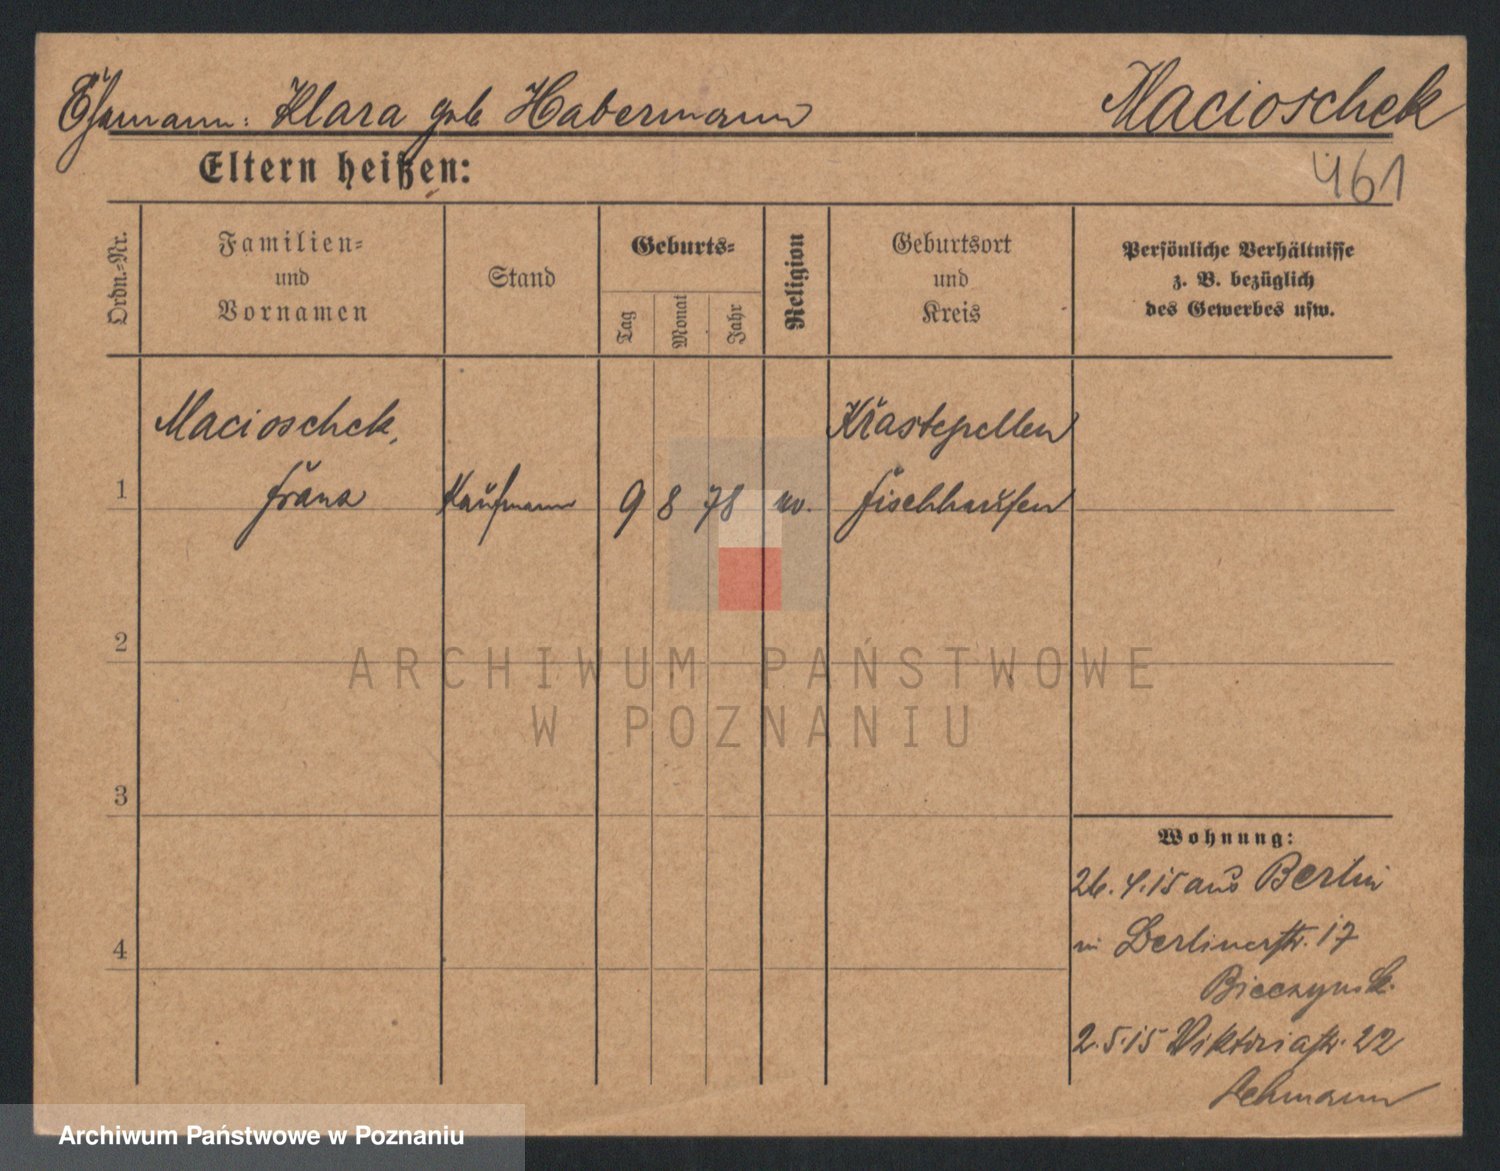 Ehemann: Klara geb Habermann
Macioschek
461
Eltern heißen:
Ordn.=Nr.
Familien=
und
Vornamen
Stand
Geburts=
Tag
Monat
Jahr
Religion
Geburtsort
und
Kreis
Persönliche Verhältnisse
z. B. bezüglich
des Gewerbes usw.
1
Macioschek,
Franz
Kaufmann
9 8 78
Krastepellen
Fischhausen
2
3
4
Wohnung:
26. 4. 15 aus Berlin
in Berlinerstr. 17
Bieczynsk.
2. 5. 15 Viktoriastr. 22
Lehmann
ARCHIWUM PAŃSTWOWE
W POZNANIU
Archiwum Państwowe w Poznaniu